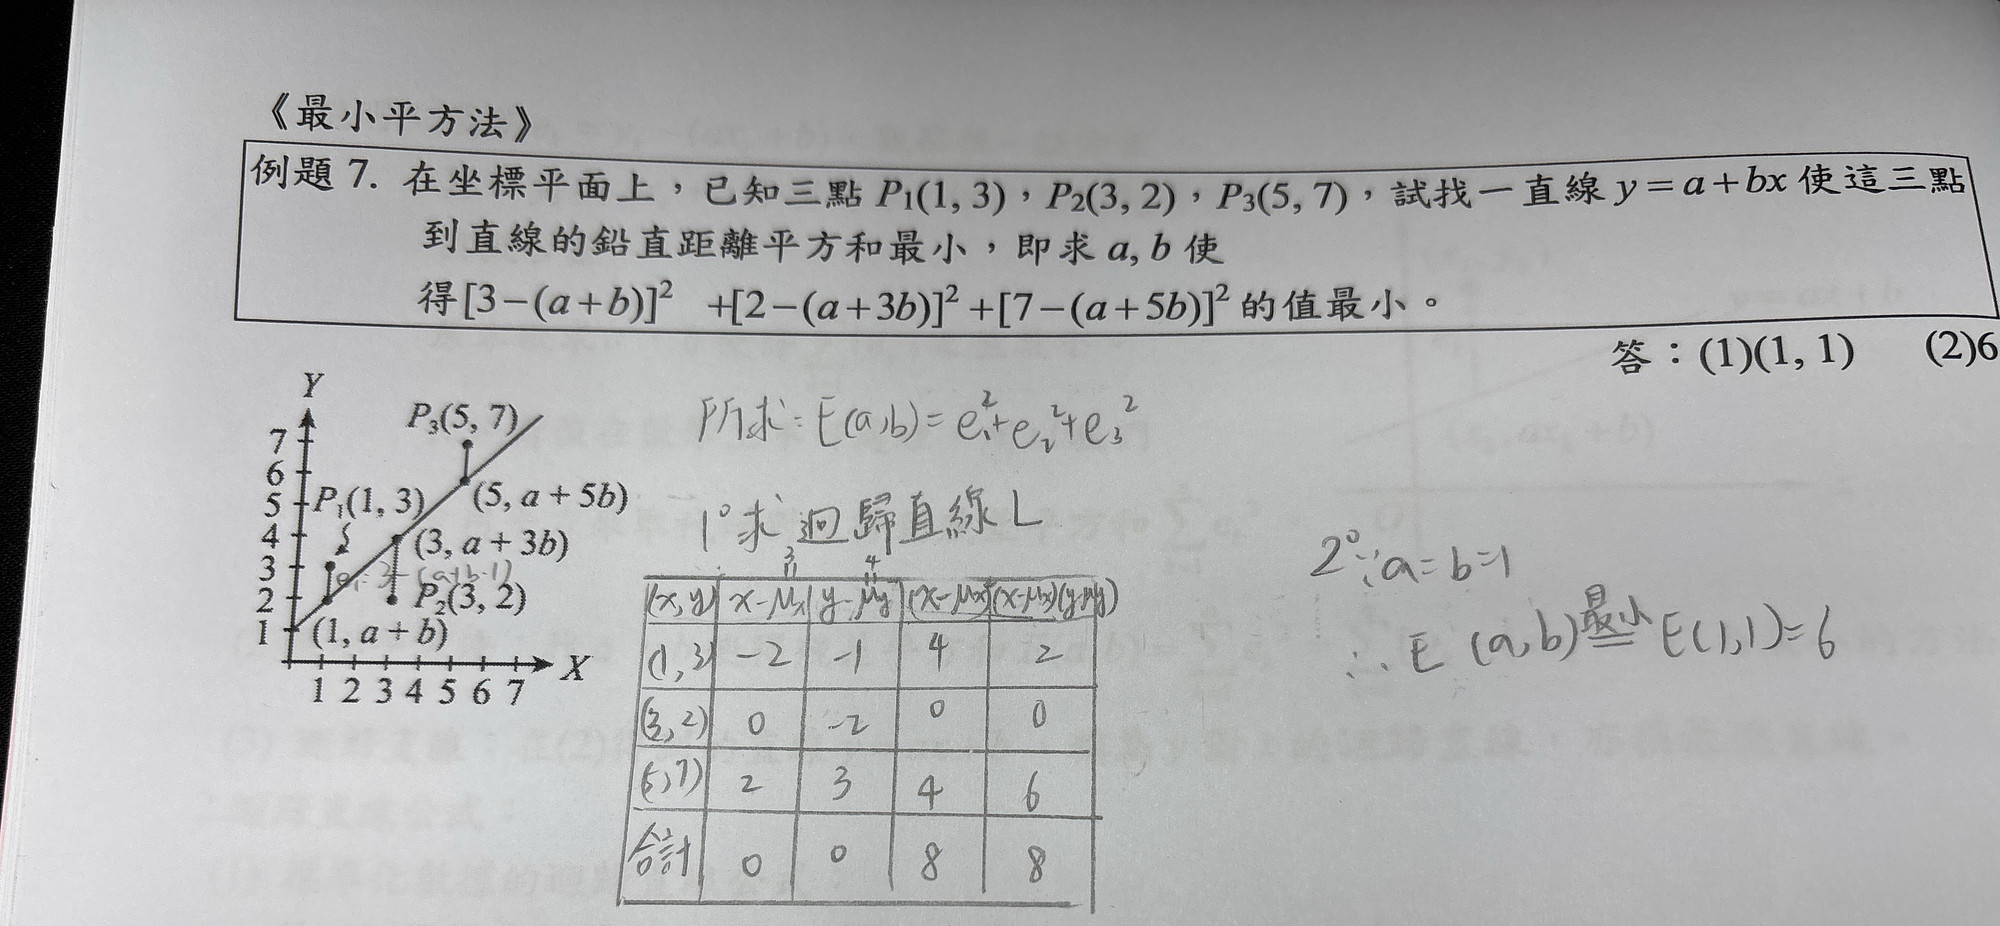 《最小平方法》
例題 7. 在坐標平面上，已知三點 P₁(1, 3)，P₂(3, 2)，P₃(5, 7)，試找一直線 y = a + bx 使這三點
到直線的鉛直距離平方和最小，即求 a, b 使
得[3−(a+b)]² +[2−(a+3b)]²+[7−(a+5b)]² 的值最小。
答：(1)(1, 1) (2)6
Y
P₃(5, 7)
7
6
5
4
3
2
1
P₁(1, 3)
(5, a + 5b)
(3, a + 3b)
P₂(3, 2)
(1, a + b)
1 2 3 4 5 6 7 X
所求：E(a,b) = e₁²+e₂²+e₃²
1° 求迴歸直線 L
3 4
(x,y) x−μx y−μy (x−μx)² (x−μx)(y−μy)
(1,3) −2 −1 4 2
(3,2) 0 −2 0 0
(5,7) 2 3 4 6
合計 0 0 8 8
2° ∵a=b=1
∴E(a,b) 最小 = E(1,1)=6